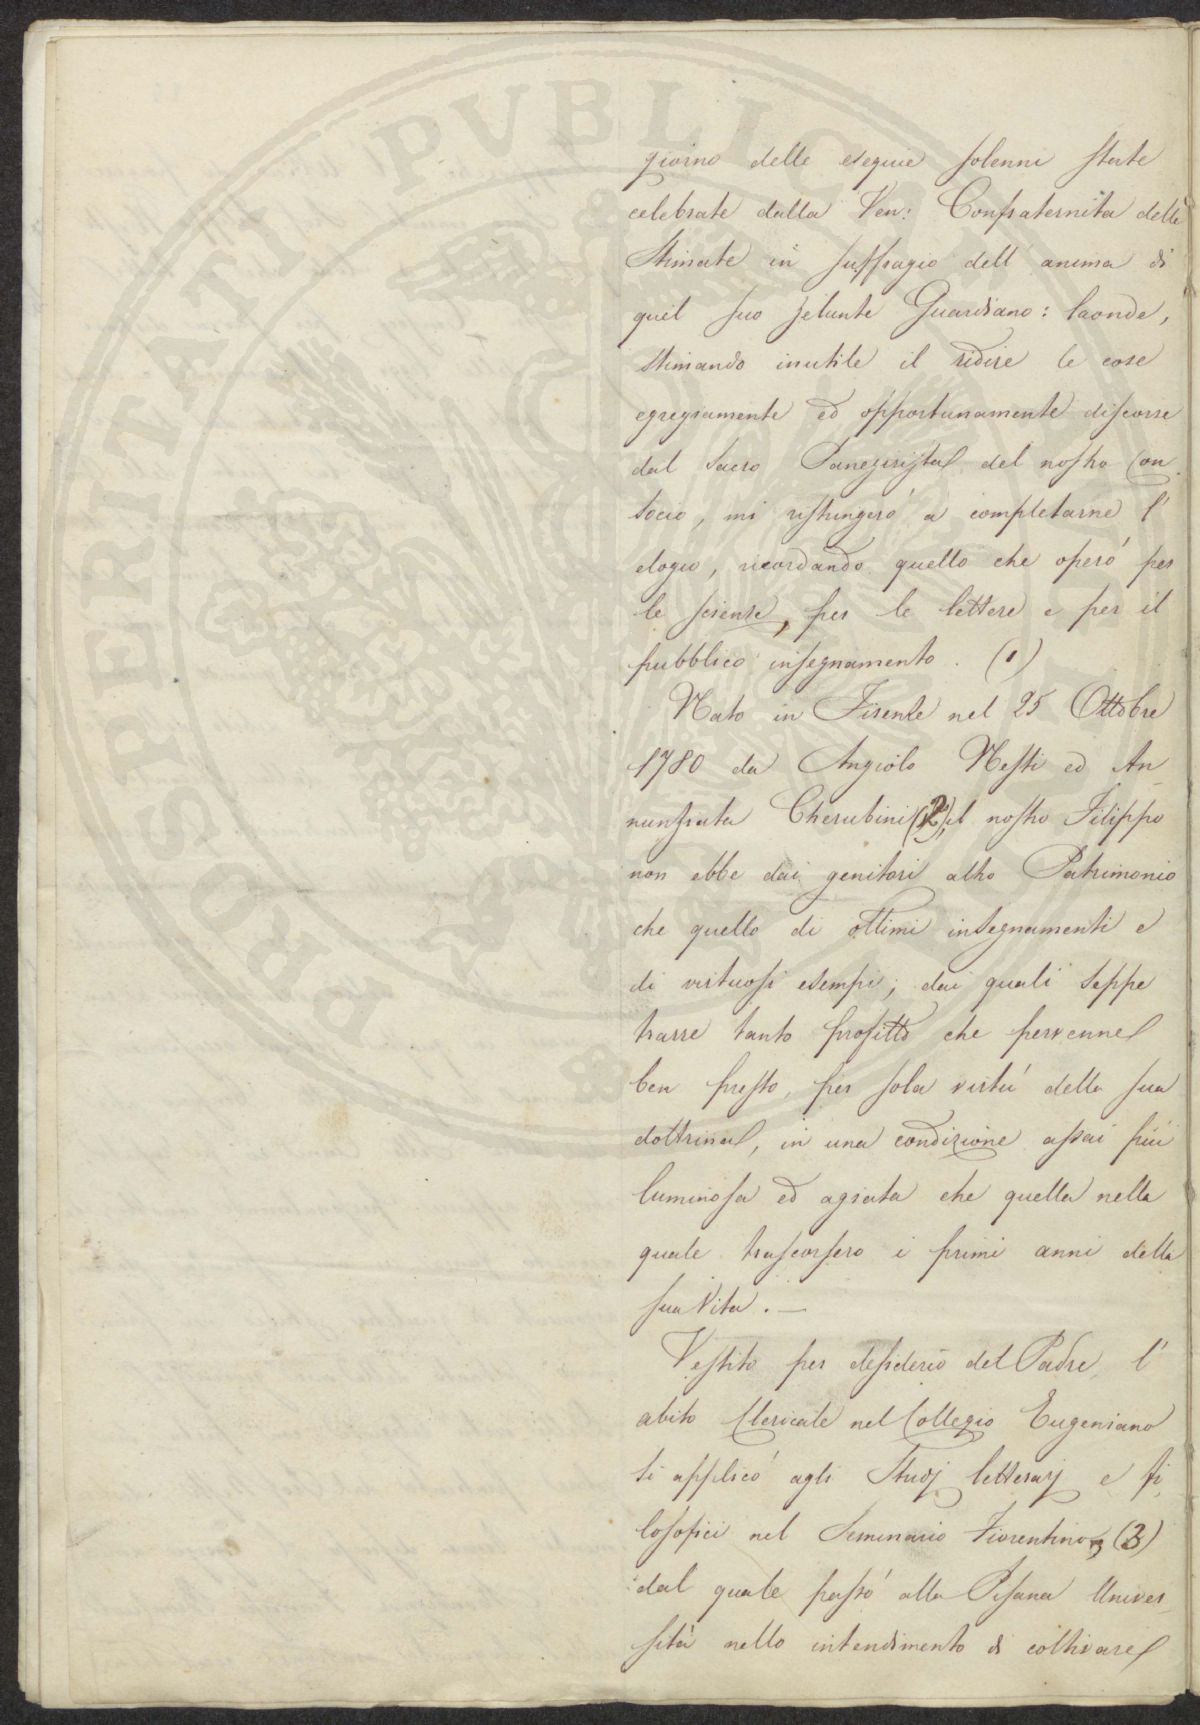 PROSPERITATI PVBLICAE
giorno delle esequie solenni state
celebrate dalla Ven: Confraternita delle
Stimate in suffragio dell' anima di
quel suo zelante Guardiano: laonde,
stimando inutile il ridire le cose
egregiamente ed opportunamente discorse
dal Sacro Panegirista del nostro Con
socio, mi ristringerò a completarne l'
elogio, ricordando quello che operò per
le scienze, per le lettere e per il
pubblico insegnamento. (1)
Nato in Firenze nel 25 Ottobre
1780 da Angiolo Nesti ed An
nunziata Cherubini (2), il nostro Filippo
non ebbe dai genitori altro Patrimonio
che quello di ottimi insegnamenti e
di virtuosi esempi; dai quali seppe
trarre tanto profitto che pervenne
ben presto, per sola virtù della sua
dottrina, in una condizione assai più
luminosa ed agiata che quella nella
quale trascorsero i primi anni della
sua Vita. —
Vestito per desiderio del Padre l'
abito Clericale nel Collegio Eugeniano
si applicò agli Studj letterarj e fi
losofici nel Seminario Fiorentino, (3)
dal quale passò alla Pisana Univer
sità nello intendimento di coltivare